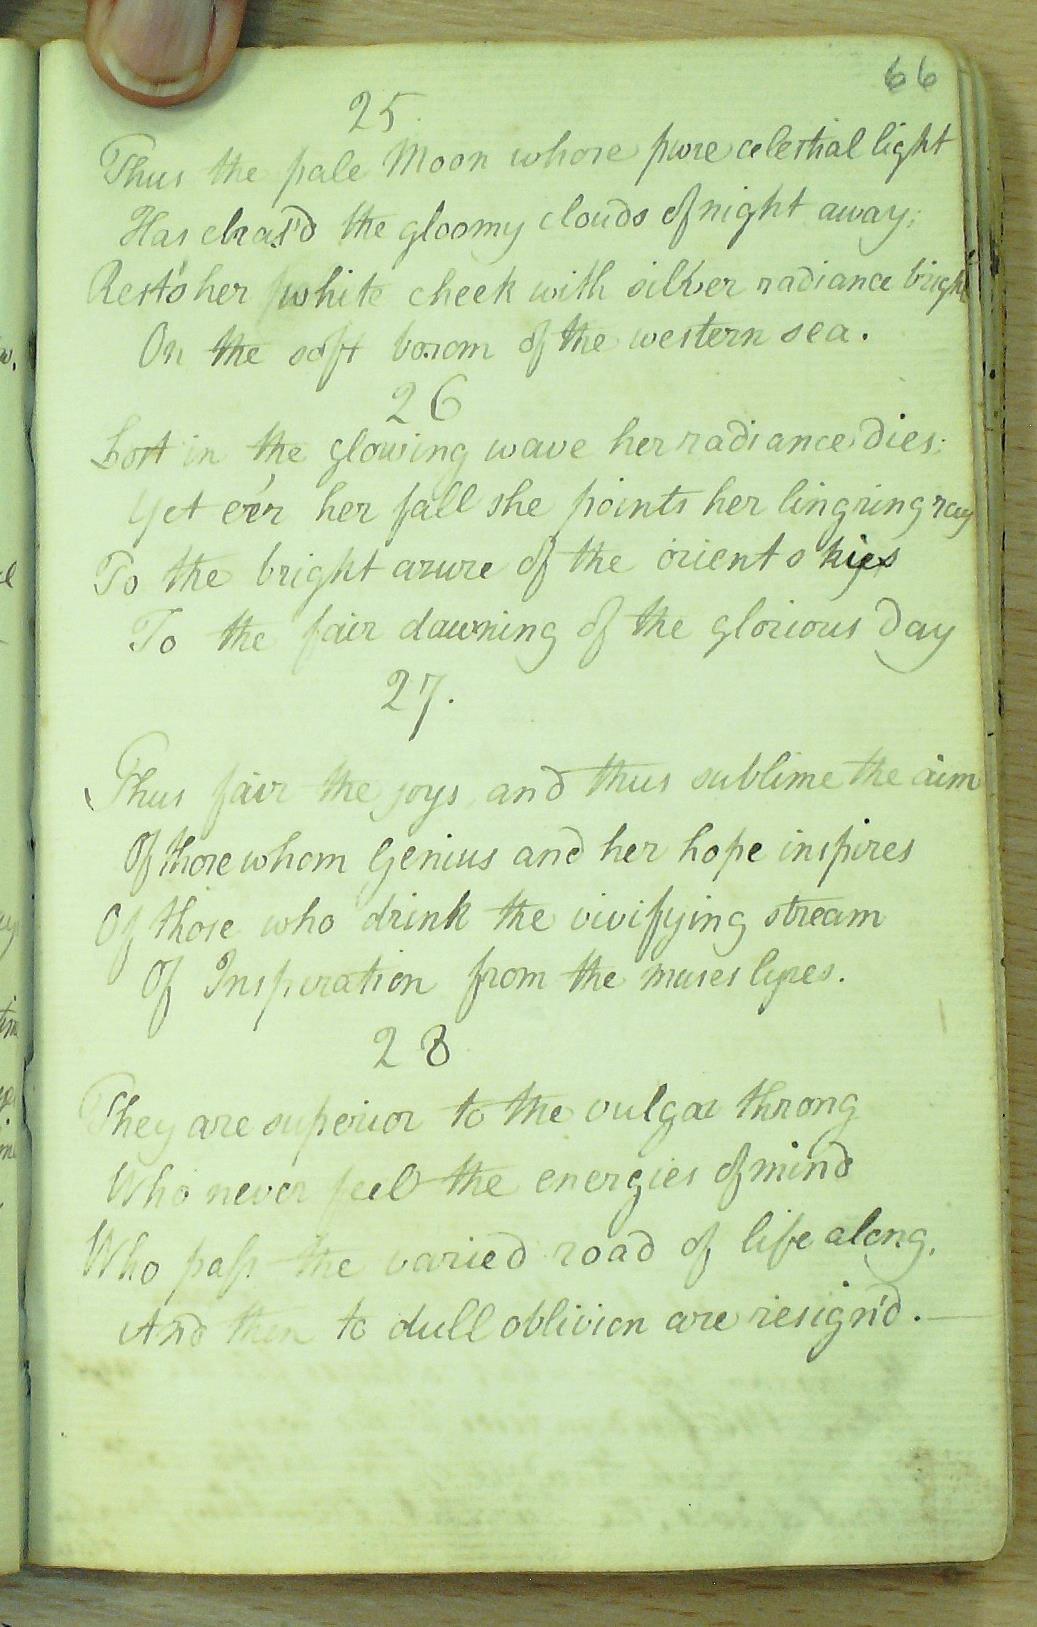 66
25.
Thus the pale Moon whose pure celestial light
Has chas'd the gloomy clouds of night away;
Rests her white cheek with silver radiance bright
On the soft bosom of the western sea.
26
Lost in the glowing wave her radiance dies;
Yet e'er her fall she points her lingring ray
To the bright azure of the orient skies
To the fair dawning of the glorious Day
27.
Thus fair the joys and thus sublime the aim
Of those whom Genius and her hope inspires
Of those who drink the vivifying stream
Of Inspiration from the muses lyres.
28
They are superior to the vulgar throng
Who never feel the energies of mind
Who pass the varied road of life along,
And then to dull oblivion are resign'd.